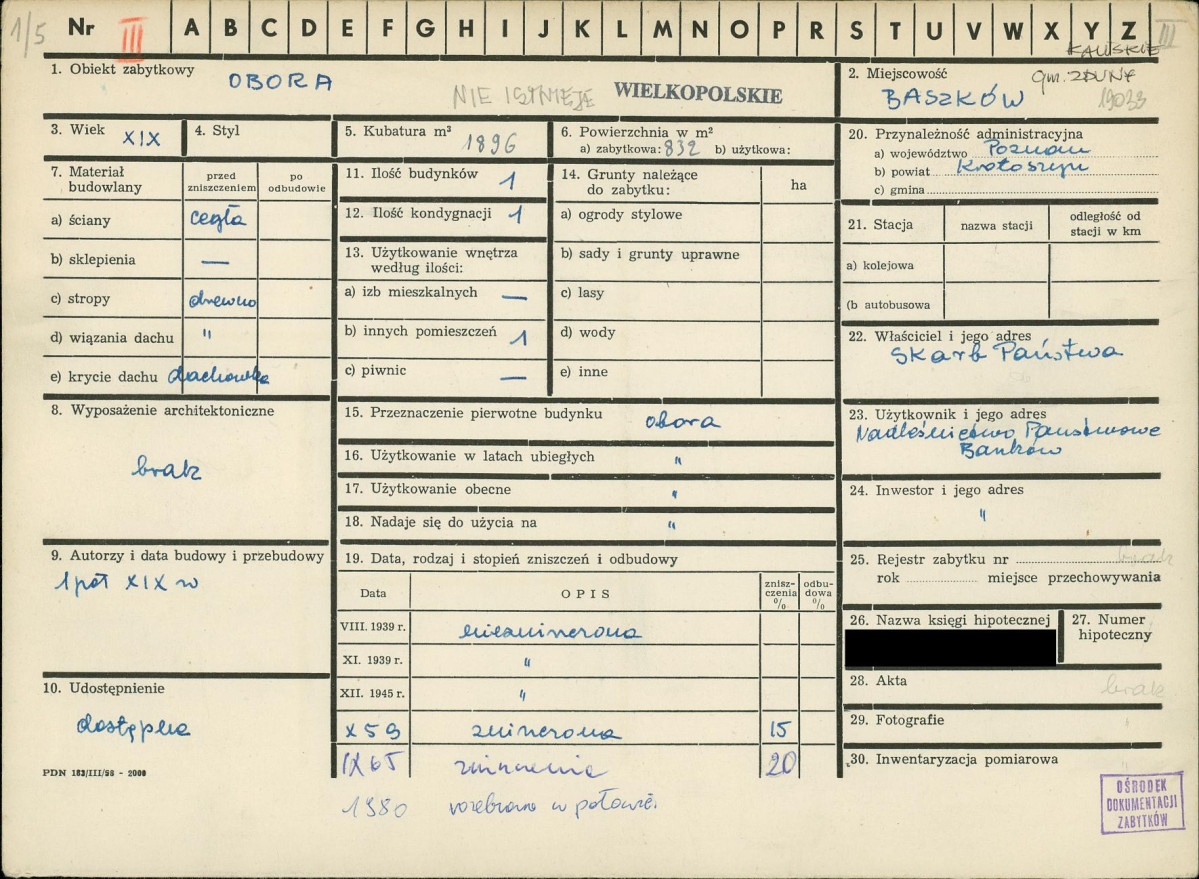 1/5 Nr III A B C D E F G H I J K L M N O P R S T U V W X Y Z III
KALISKIE
1. Obiekt zabytkowy OBORA
NIE ISTNIEJE WIELKOPOLSKIE
2. Miejscowość gm. ZDUNY
BASZKÓW 19033
3. Wiek XIX
4. Styl
5. Kubatura m³ 1896
6. Powierzchnia w m²
a) zabytkowa: 832 b) użytkowa:
7. Materiał budowlany
przed zniszczeniem
po odbudowie
a) ściany cegła
b) sklepienia —
c) stropy drewno
d) wiązania dachu "
e) krycie dachu dachówka
8. Wyposażenie architektoniczne
brak
9. Autorzy i data budowy i przebudowy
1 poł XIX w
10. Udostępnienie
dostępna
PDN 183/III/58 - 2000
11. Ilość budynków 1
12. Ilość kondygnacji 1
13. Użytkowanie wnętrza
według ilości:
a) izb mieszkalnych —
b) innych pomieszczeń 1
c) piwnic —
14. Grunty należące
do zabytku:
ha
a) ogrody stylowe
b) sady i grunty uprawne
c) lasy
d) wody
e) inne
15. Przeznaczenie pierwotne budynku obora
16. Użytkowanie w latach ubiegłych "
17. Użytkowanie obecne "
18. Nadaje się do użycia na "
19. Data, rodzaj i stopień zniszczeń i odbudowy
Data
OPIS
zniszczenia %
odbudowa %
VIII. 1939 r.
XI. 1939 r. "
XII. 1945 r. "
X 59 15
IX 65 zniszczenia 20
1980 rozebrano w połowie.
20. Przynależność administracyjna
a) województwo Poznań
b) powiat Krotoszyn
c) gmina
21. Stacja
nazwa stacji
odległość od
stacji w km
a) kolejowa
(b autobusowa
22. Właściciel i jego adres
Skarb Państwa
23. Użytkownik i jego adres
Nadleśnictwo Państwowe
24. Inwestor i jego adres
"
25. Rejestr zabytku nr brak
rok miejsce przechowywania
26. Nazwa księgi hipotecznej
27. Numer
hipoteczny
28. Akta brak
29. Fotografie
30. Inwentaryzacja pomiarowa
OŚRODEK
DOKUMENTACJI
ZABYTKÓW